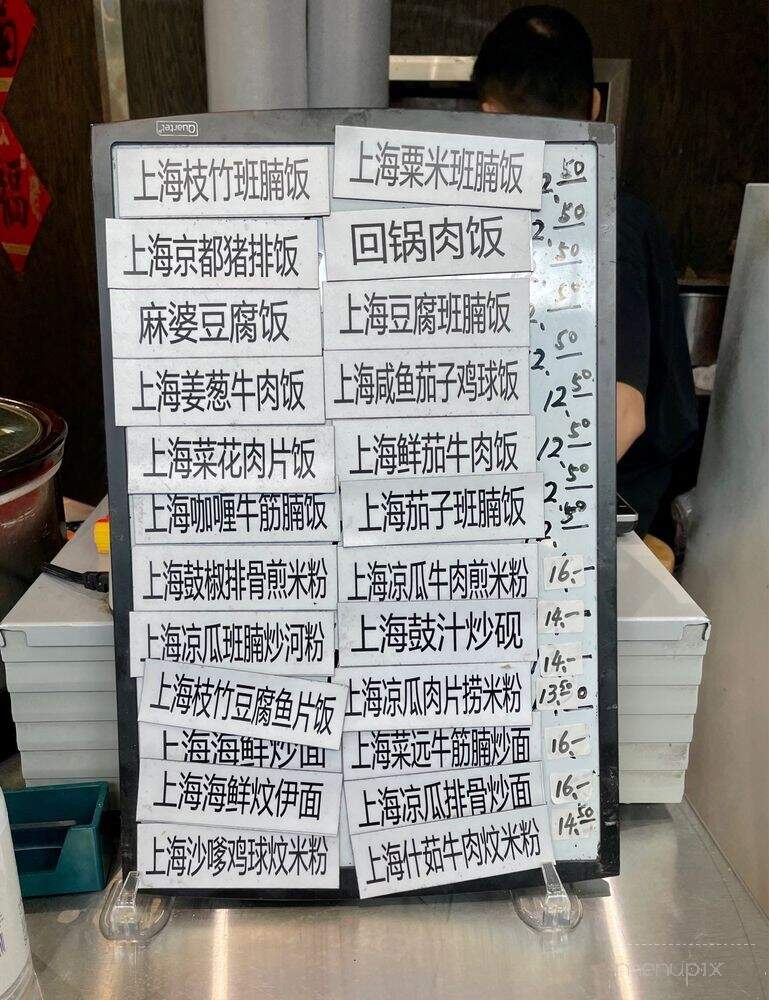 Quartet
上海枝竹班腩饭 上海粟米班腩饭 2.50
上海京都猪排饭 回锅肉饭 2.50
麻婆豆腐饭 上海豆腐班腩饭
上海姜葱牛肉饭 上海咸鱼茄子鸡球饭 2.50
上海菜花肉片饭 上海鲜茄牛肉饭 12.50
上海咖喱牛筋腩饭 上海茄子班腩饭 12.50
上海鼓椒排骨煎米粉 上海凉瓜牛肉煎米粉 16.-
上海凉瓜班腩炒河粉 上海鼓汁炒砚 14.-
14.-
上海枝竹豆腐鱼片饭 上海凉瓜肉片捞米粉 13.50
上海海鲜炒面 上海菜远牛筋腩炒面 16.-
上海海鲜炆伊面 上海凉瓜排骨炒面 16.-
上海沙嗲鸡球炆米粉 上海什茹牛肉炆米粉 14.50
menupix